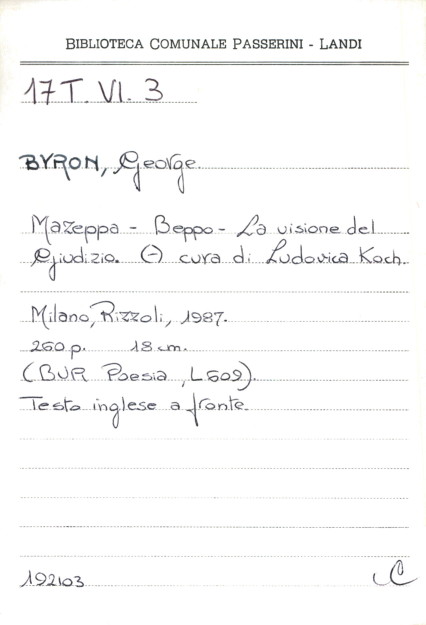 BIBLIOTECA COMUNALE PASSERINI - LANDI
17 T. VI. 3
BYRON, George
Mazeppa - Beppo - La visione del
Giudizio. (-) cura di Ludovica Koch.
Milano, Rizzoli, 1987.
260 p. 18 cm.
(BUR Poesia, L609).
Testo inglese a fronte.
192103